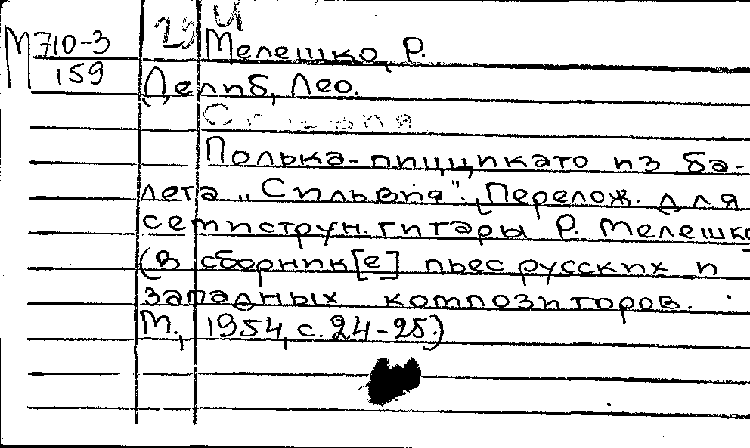 М 710-3
159
Мелешко, Р.
Делиб, Лео.
Сильвия
Полька-пиццикато из ба-
лета „Сильвия". [Перелож. для
семиструн. гитары Р. Мелешко
(В сборник[е] пьес русских и
западных композиторов.
М., 1954, с. 24-25)